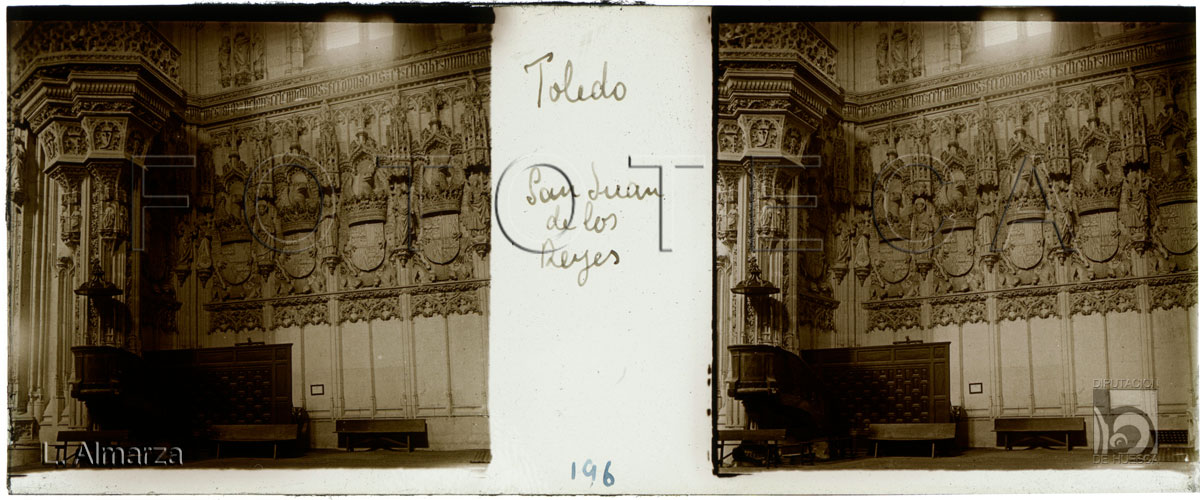 Toledo
San Juan
de los
Reyes
196
FOTOTECA
L. Almarza
DIPUTACIÓN
DE HUESCA